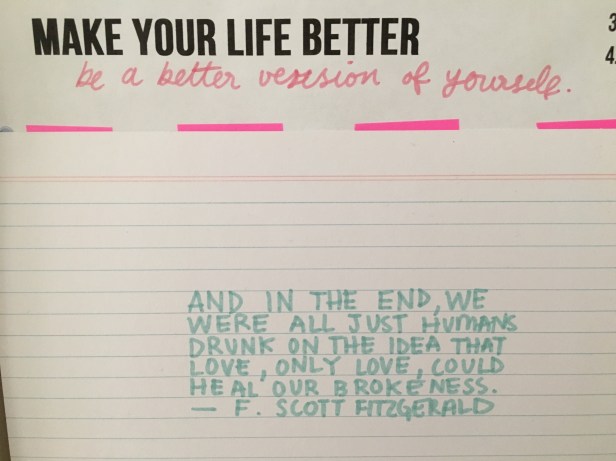 MAKE YOUR LIFE BETTER
3
4.
be a better version of yourself.
AND IN THE END, WE
WERE ALL JUST HUMANS
DRUNK ON THE IDEA THAT
LOVE, ONLY LOVE, COULD
HEAL OUR BROKENESS.
— F. SCOTT FITZGERALD